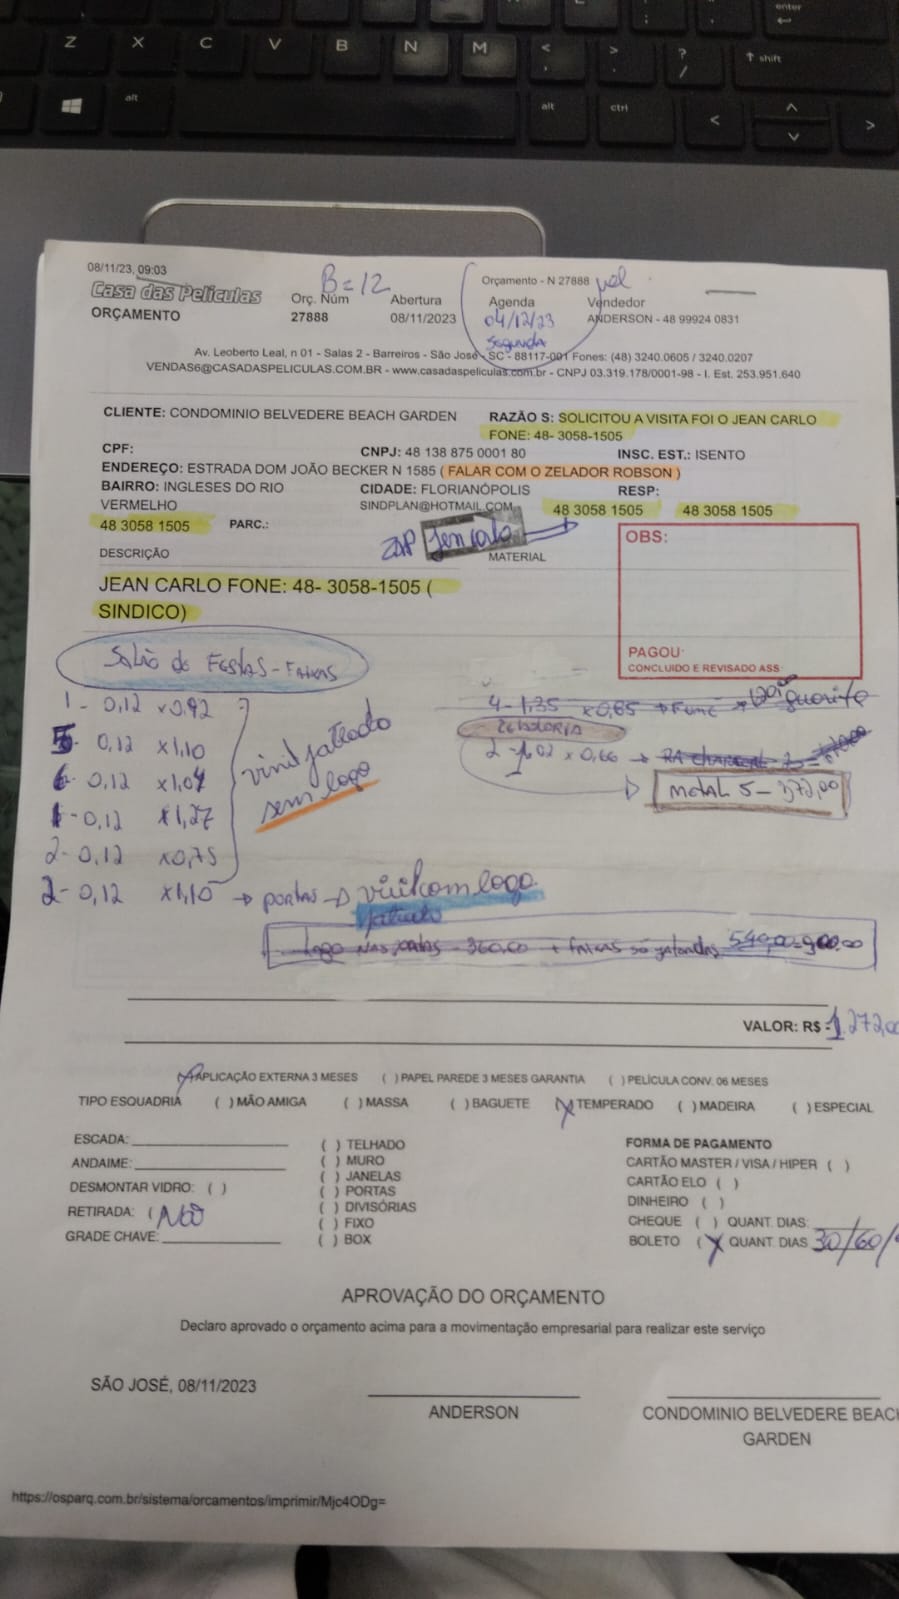 Z X C V B N M < , > . ? / ↑ shift
enter
alt alt ctrl < ^ v >
08/11/23, 09:03 B=12 Orçamento - N 27888
Casa das Películas Orç. Núm Abertura Agenda Vendedor
ORÇAMENTO 27888 08/11/2023 04/12/23 ANDERSON - 48 99924 0831
Segunda
Av. Leoberto Leal, n 01 - Salas 2 - Barreiros - São José - SC - 88117-001 Fones: (48) 3240.0605 / 3240.0207
VENDAS6@CASADASPELICULAS.COM.BR - www.casadaspeliculas.com.br - CNPJ 03.319.178/0001-98 - I. Est. 253.951.640
CLIENTE: CONDOMINIO BELVEDERE BEACH GARDEN RAZÃO S: SOLICITOU A VISITA FOI O JEAN CARLO
FONE: 48- 3058-1505
CPF: CNPJ: 48 138 875 0001 80 INSC. EST.: ISENTO
ENDEREÇO: ESTRADA DOM JOÃO BECKER N 1585 ( FALAR COM O ZELADOR ROBSON )
BAIRRO: INGLESES DO RIO CIDADE: FLORIANÓPOLIS RESP:
VERMELHO SINDPLAN@HOTMAIL.COM 48 3058 1505 48 3058 1505
48 3058 1505 PARC.:
DESCRIÇÃO MATERIAL OBS:
JEAN CARLO FONE: 48- 3058-1505 (
SINDICO)
PAGOU:
CONCLUIDO E REVISADO ASS:
Salão de Festas - Faixas
1 - 0,12 x0,92 4 - 1,35 x0,85 guarita
5 - 0,12 x1,10 ZELADORIA
6 - 0,12 x1,04 vinil jateado 2 - 1,02 x 0,66
1 - 0,12 x1,27 sem logo Metal 5 - 372,00
2 - 0,12 x0,75
2 - 0,12 x1,10 → portas → vinil com logo
jateado
Logo nas portas - 360,00 + faixas só jateadas 540,00 = 900,00
VALOR: R$ 1.272,00
APLICAÇÃO EXTERNA 3 MESES ( ) PAPEL PAREDE 3 MESES GARANTIA ( ) PELÍCULA CONV. 06 MESES
TIPO ESQUADRIA ( ) MÃO AMIGA ( ) MASSA ( ) BAGUETE (X) TEMPERADO ( ) MADEIRA ( ) ESPECIAL
ESCADA: ( ) TELHADO FORMA DE PAGAMENTO
ANDAIME: ( ) MURO CARTÃO MASTER / VISA / HIPER ( )
DESMONTAR VIDRO: ( ) ( ) JANELAS CARTÃO ELO ( )
( ) PORTAS DINHEIRO ( )
RETIRADA: ( NÃO ( ) DIVISÓRIAS CHEQUE ( ) QUANT. DIAS:
( ) FIXO
GRADE CHAVE: ( ) BOX BOLETO (X QUANT. DIAS 30/60/
APROVAÇÃO DO ORÇAMENTO
Declaro aprovado o orçamento acima para a movimentação empresarial para realizar este serviço
SÃO JOSÉ, 08/11/2023
ANDERSON CONDOMINIO BELVEDERE BEACH
GARDEN
https://osparq.com.br/sistema/orcamentos/imprimir/Mjc4ODg=